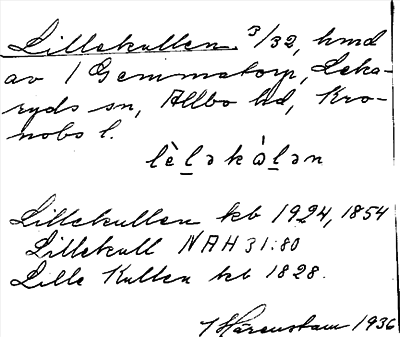 Lillekullen. 3/32, hmd
av 1 Gemmatorp, Leka-
ryds sn, Allbo hd, Kro-
nobs l.
lè̱lək à̱lən
Lillekullen kb 1924, 1854
Lillekull NAH 31:80
Lille Kullen kb 1828.
Härenstam 1936